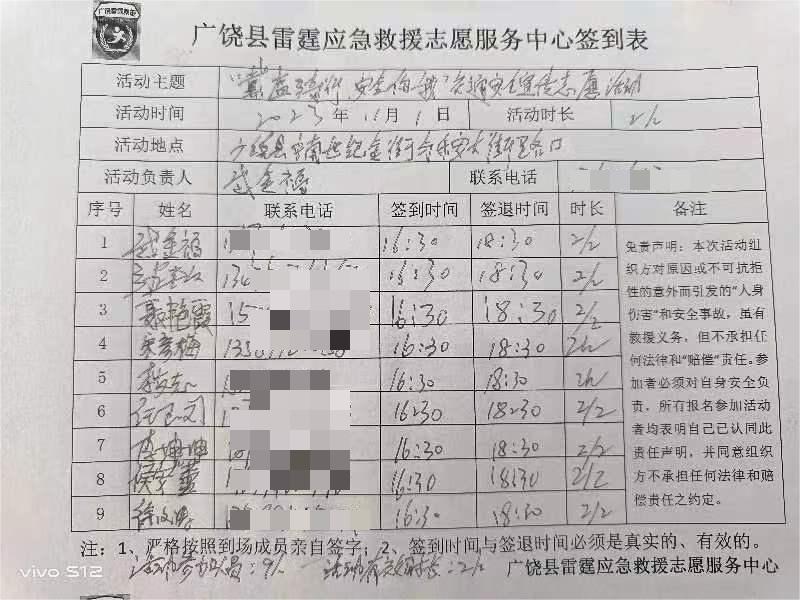 广饶县雷霆应急救援志愿服务中心签到表
活动主题 "戴盔骑行,安全伯我"交通安全宣传志愿活动
活动时间 2023年11月1日 活动时长 2h
活动地点
活动负责人 武金福 联系电话
序号 姓名 联系电话 签到时间 签退时间 时长 备注
1 武金福 16:30 18:30 2h
2 134 16:30 18:30 2h
3 15 16:30 18:30 2h
4 16:30 18:30 2h
5 16:30 18:30 2h
6 16:30 18:30 2h
7 李坤坤 16:30 18:30 2h
8 16:30 18:30 2h
9 16:30 18:30 2h
免责声明:本次活动组
织方对原因或不可抗拒
性的意外而引发的"人身
伤害"和安全事故,虽有
救援义务,但不承担任
何法律和"赔偿"责任。参
加者必须对自身安全负
责,所有报名参加活动
者均表明自己已认同此
责任声明,并同意组织
方不承担任何法律和赔
偿责任之约定。
注:1、严格按照到场成员亲自签字;2、签到时间与签退时间必须是真实的、有效的。
活动参加人员:9人 活动有效时长:2h
广饶县雷霆应急救援志愿服务中心
vivo S12